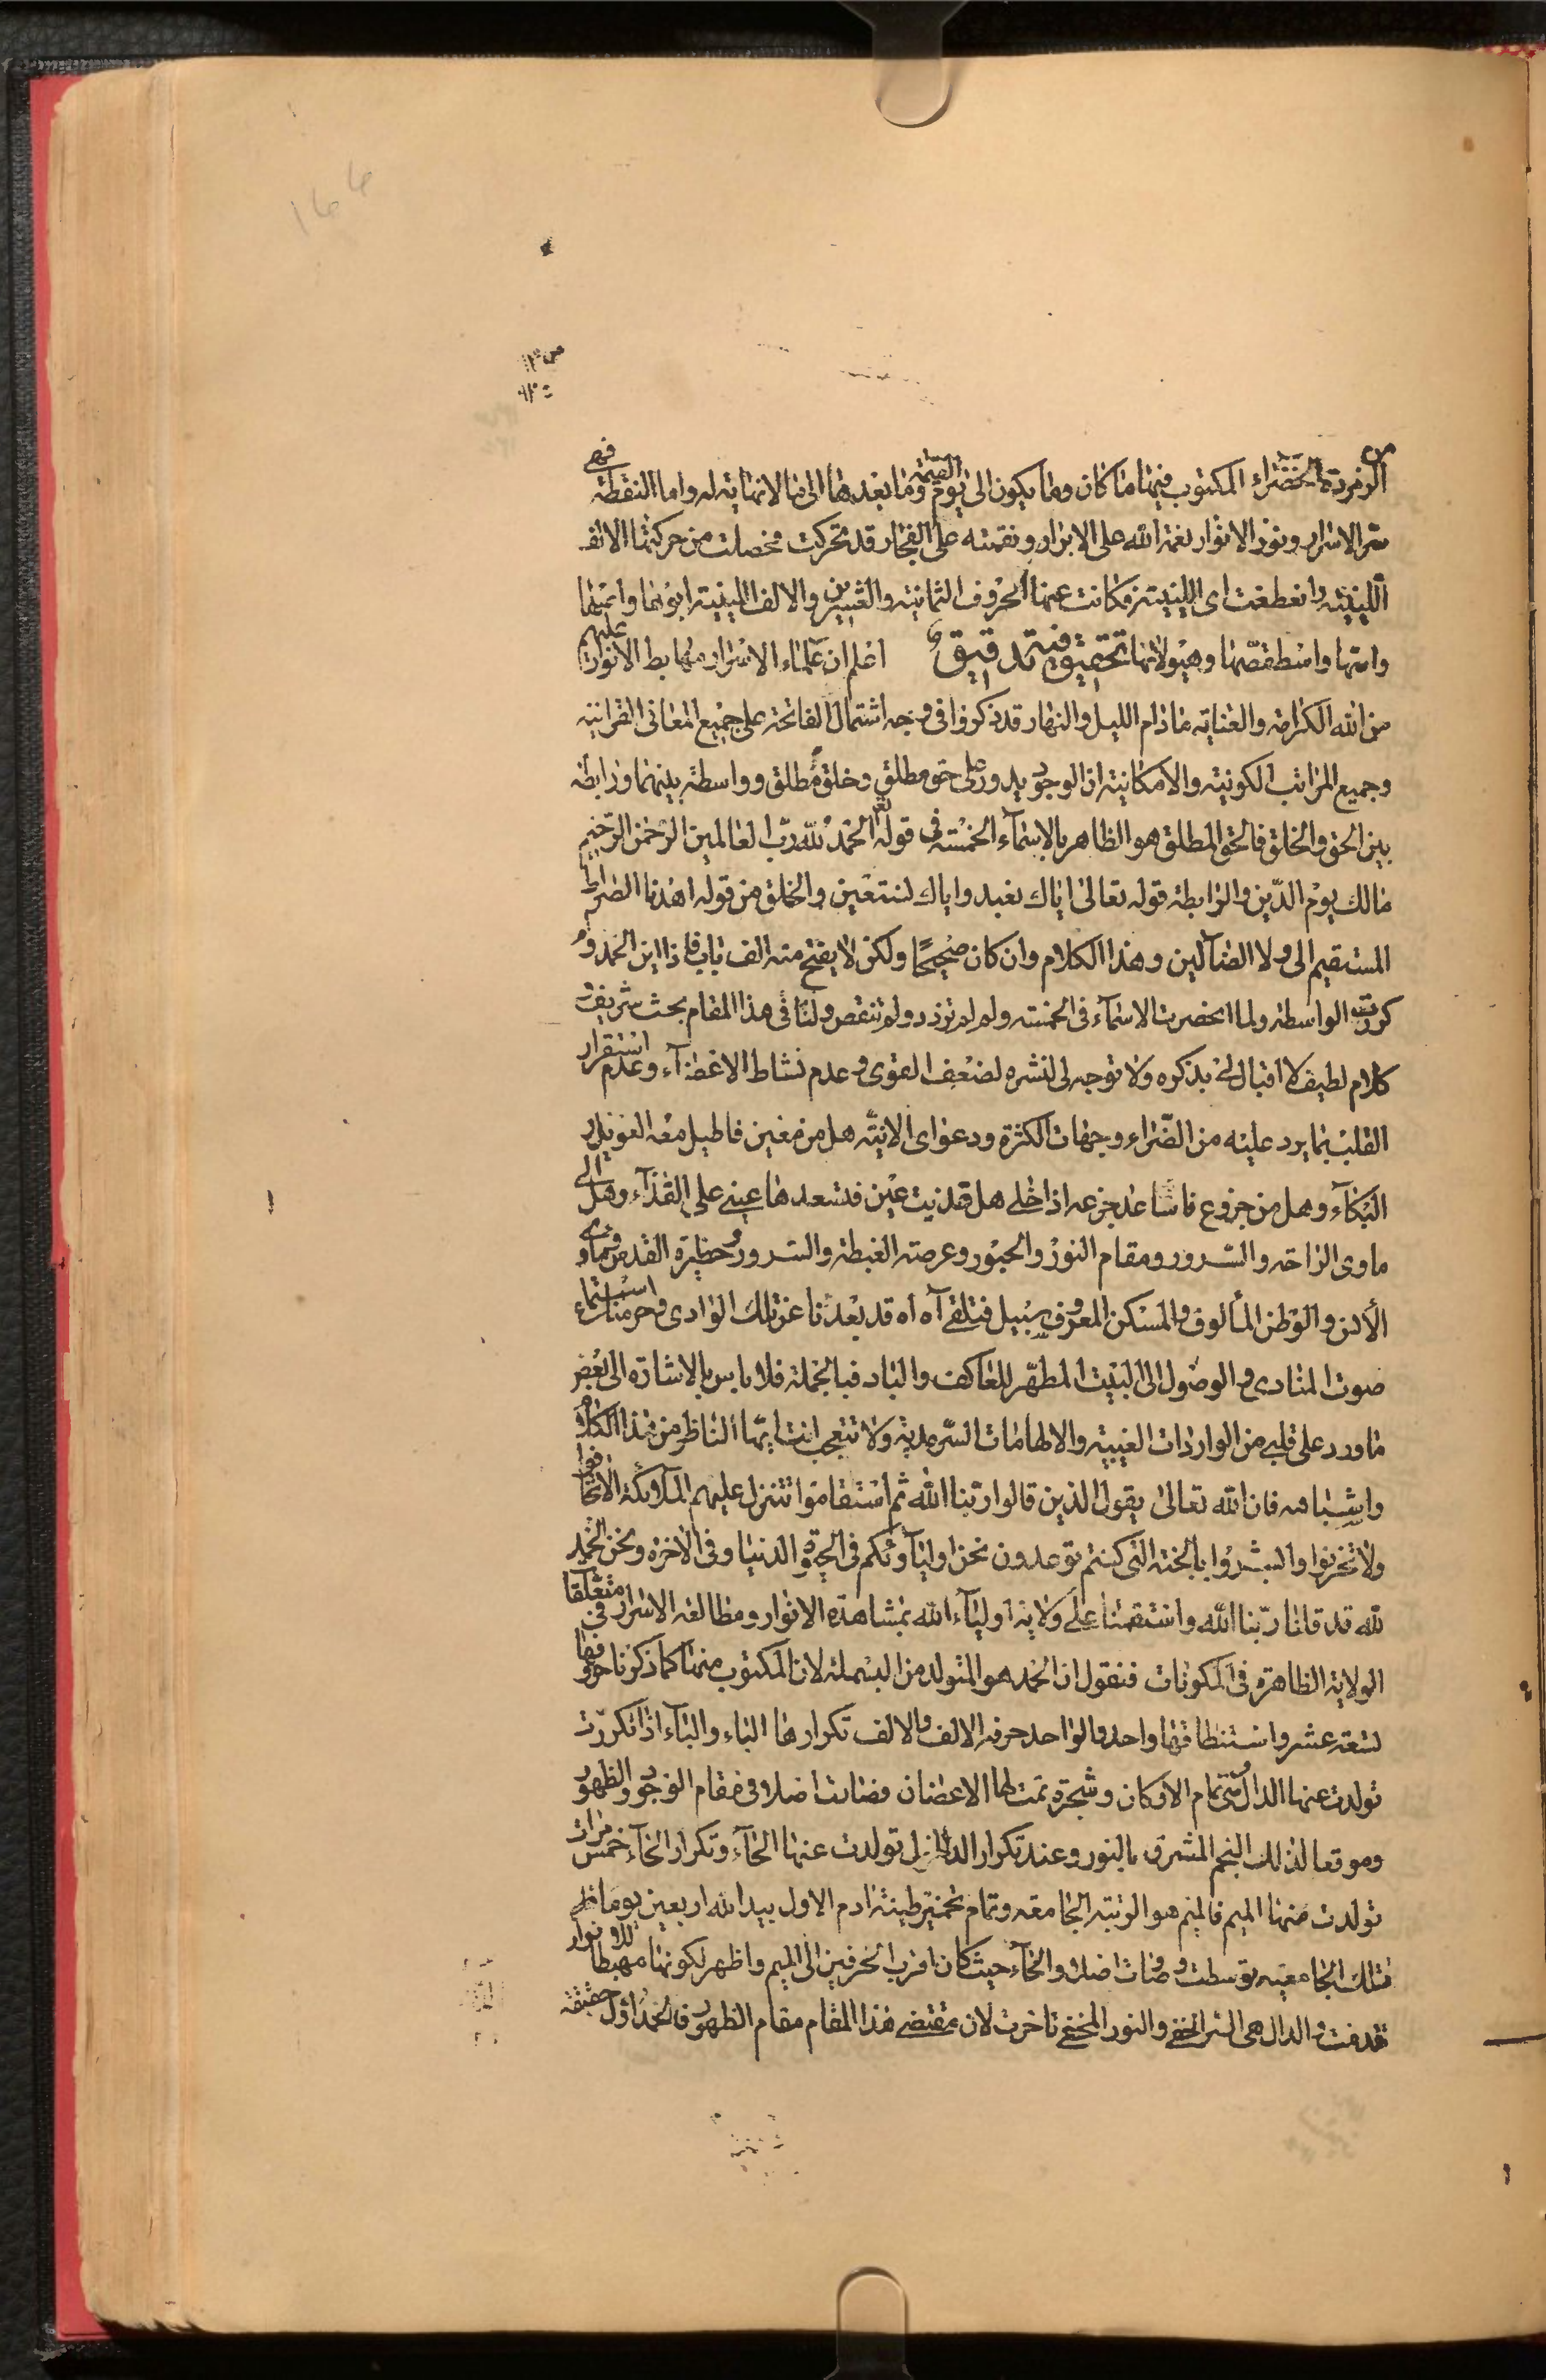 ١٤٤
من الزمردة الخضراء المكتوب فيها ما كان وما يكون الى يوم القيمة وما بعدها الى ما لا نهاية له واما النقطة فهي
سر الاسرار ونور الانوار نعمة الله على الابرار ونقمته على الفجار قد تحركت فحصلت من حركتها الالف
اللينية وانعطفت اى اللينية فكانت عنها الحروف الثمانية والعشرين والالف اللينية ابوها وامها
وامها واسطقسها وهيولاها تحقيق فيه تدقيق اعلم ان علماء الاسرار مهابط الانوار عليهم
من الله الكرامة والعناية ما دام الليل والنهار قد ذكروا فى وجه اشتمال الفاتحة على جميع المعانى القرانية
وجميع المراتب الكونية والامكانية ان الوجود يدور على حق مطلق وخلق مطلق وواسطة بينهما ورابطة
بين الحق والخلق فالحق المطلق هو الظاهر بالاسماء الخمسة فى قوله تعالى الحمد لله رب العالمين الرحمن الرحيم
مالك يوم الدين والرابطة قوله تعالى اياك نعبد واياك نستعين والخلق من قوله اهدنا الصراط
المستقيم الى ولا الضآلين وهذا الكلام وان كان صحيحًا ولكن لا يفتح منه الف باب فاذا اين الحمد ولم
كررت الواسطة ولما انحصرت الاسماء فى الخمسة ولم لم تزدد ولم تنقص ولنا فى هذا المقام بحث شريف و
كلام لطيف لا اقبال لى بذكره ولا توجه لى لنشره لضعف القوى وعدم نشاط الاعضآء وعدم استقرار
القلب بما يرد عليه من الضراء وجهات الكثرة ودعواى الانية هل من معين فاطيل معه العويل و
البكآء وهل من جزوع فاساعد جزعه اذا خلى هل قذيت عين فتسعدها عينى على القذآء وهل الى
ماوى الراحة والسرور ومقام النور والحبور وعرصة الغبطة والسرور وحظيرة القدس وماوى
الأنس والوطن المألوف والمسكن المعروف سبيل فتلقى آه اه قد بعدنا عن تلك الوادى وحرمنا استماع
صوت المنادى والوصول الى البيت المطهر للعاكف والباد فبالجملة فلا باس بالاشارة الى بعض
ما ورد على قلبى من الواردات الغيبية والالهامات السرمدية ولا تتعجب انت ايها الناظر من هذا الكلام
واشباهه فان الله تعالى يقول الذين قالوا ربنا الله ثم استقاموا تتنزل عليهم الملائكة الا تخافوا
ولا تحزنوا وابشروا بالجنة التى كنتم توعدون نحن اوليآوكم فى الحيوة الدنيا وفى الاخرة ونحن الحمد
لله قد قلنا ربنا الله واستقمنا على ولاية اوليآء الله بمشاهدة الانوار ومطالعة الاسرار فى متعلقات
الولاية الظاهرة فى المكونات فنقول ان الحمد هو المتولد من البسملة لان المكتوب منها كما ذكرنا حروفها
تسعة عشر واستنطاقها واحد والواحد حرفه الالف والالف تكرارها الباء والباء اذا تكررت
تولدت عنها الدال تمام الاركان وشجرة تمت لها الاغصان فصارت اصلا فى مقام الوجود والظهور
وموقعا لذلك النجم المشرق بالنور وعند تكرار الدال تولدت عنها الحآء وتكرار الحآء خمس مرات
تولدت منها الميم فالميم هو الرتبة الجامعة وتمام تخمير طينة ادم الاول بيد الله اربعين يوما
فتلك الجامعية توسطت وصارت اصلا والحآء حيث كان اقرب الحرفين الى الميم واظهر لكونها مهبطا للانوار
تقدمت والدال هى السر الخفى والنور المختفى تاخرت لان مقتضى هذا المقام مقام الظهور فالحمد اول حقيقة